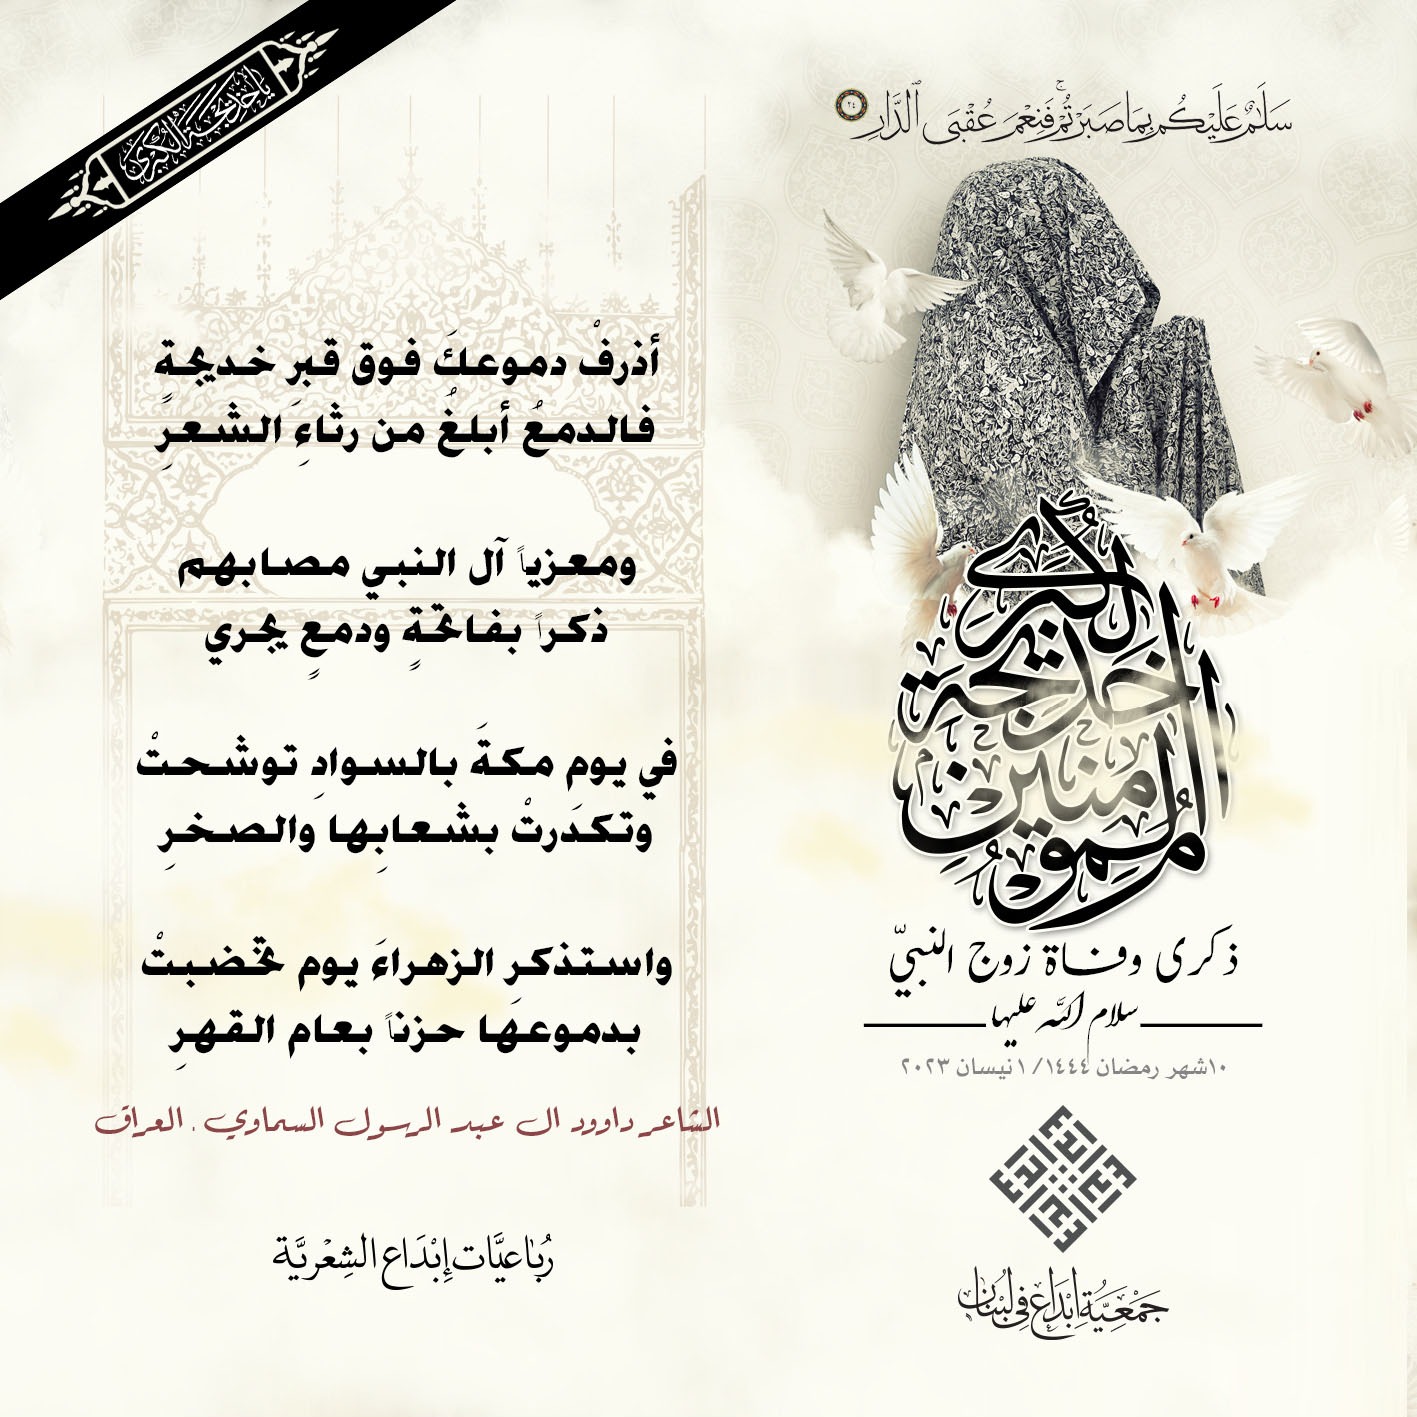 يا خديجة الكبرى
سَلَامٌ عَلَيْكُم بِمَا صَبَرْتُمْ ۚ فَنِعْمَ عُقْبَى ٱلدَّارِ ٢٤
أم المؤمنين خديجة الكبرى
ذكرى وفاة زوج النبيّ
سلام الله عليها
١٠شهر رمضان ١٤٤٤/ ١نيسان ٢٠٢٣
جَمْعِيَّةُ إِبْدَاع فِي لُبْنَان
أذرفْ دموعكَ فوق قبرِ خديجةٍ
فالدمعُ أبلغُ من رثاءِ الشعرِ
ومعزياً آل النبي مصابهم
ذكراً بفاتحةٍ ودمعٍ يجري
في يومِ مكةَ بالسوادِ توشحتْ
وتكدرتْ بشعابِها والصخرِ
واستذكرِ الزهراءَ يوم تخضبتْ
بدموعها حزناً بعام القهرِ
الشاعر داوود ال عبد الرسول السماوي . العراق
رُبَاعيَّات إِبْدَاع الشِعْريَّة